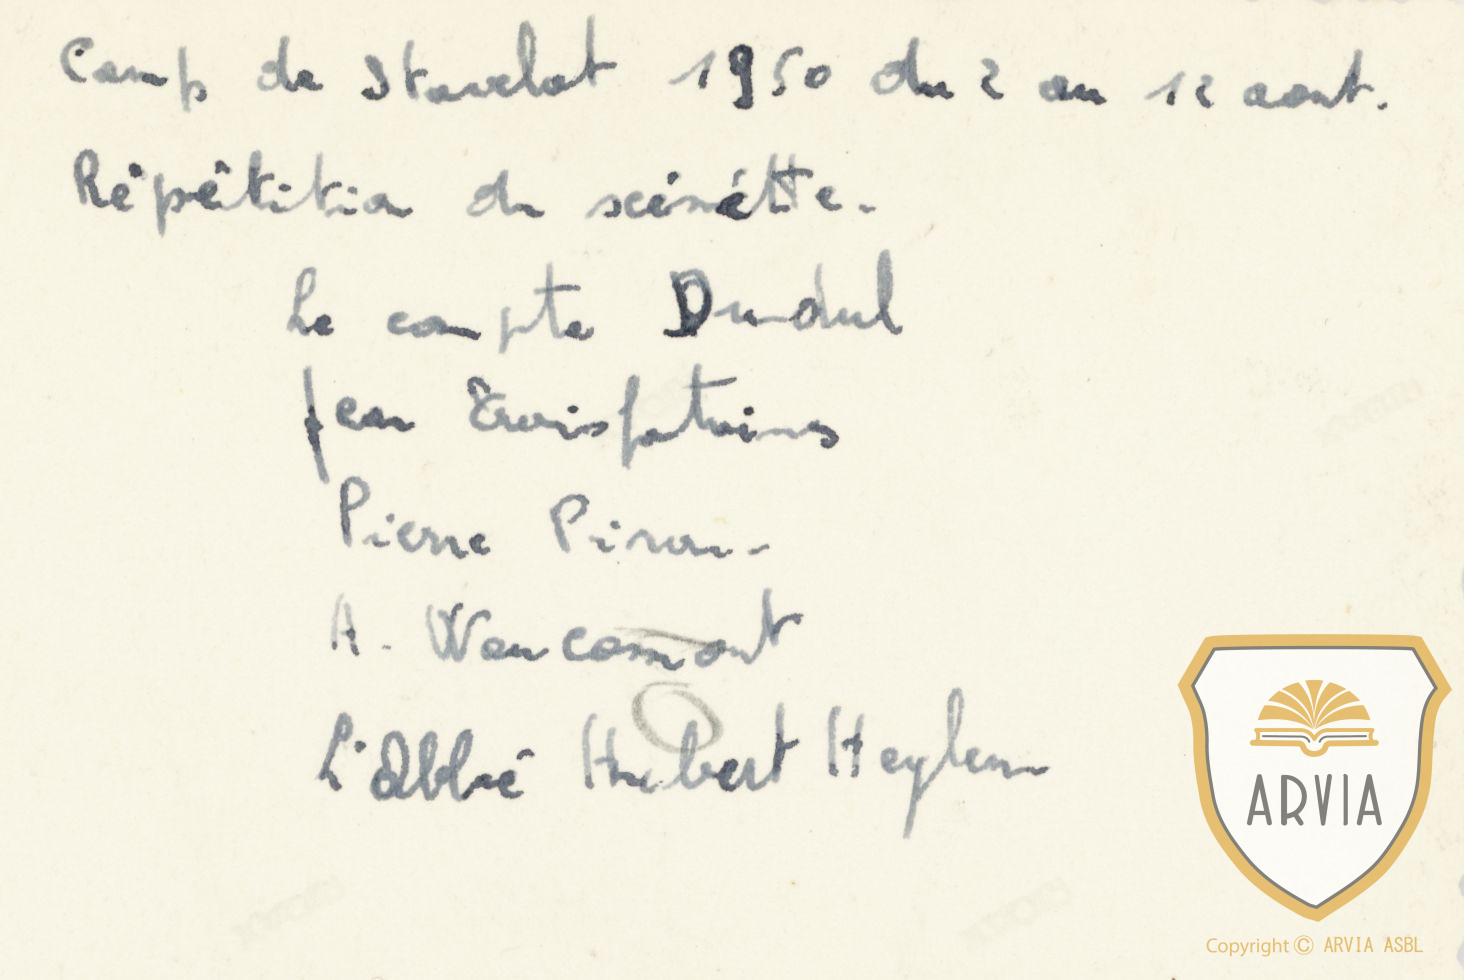 Camp de Stavelot 1950 du 2 au 12 aout.
Répétition du scénétte.
Le compte Dudul
Jean Troisfontaines
Pierre Piron.
A. Wancomont
L'abbé Hubert Heylen
ARVIA
Copyright © ARVIA ASBL